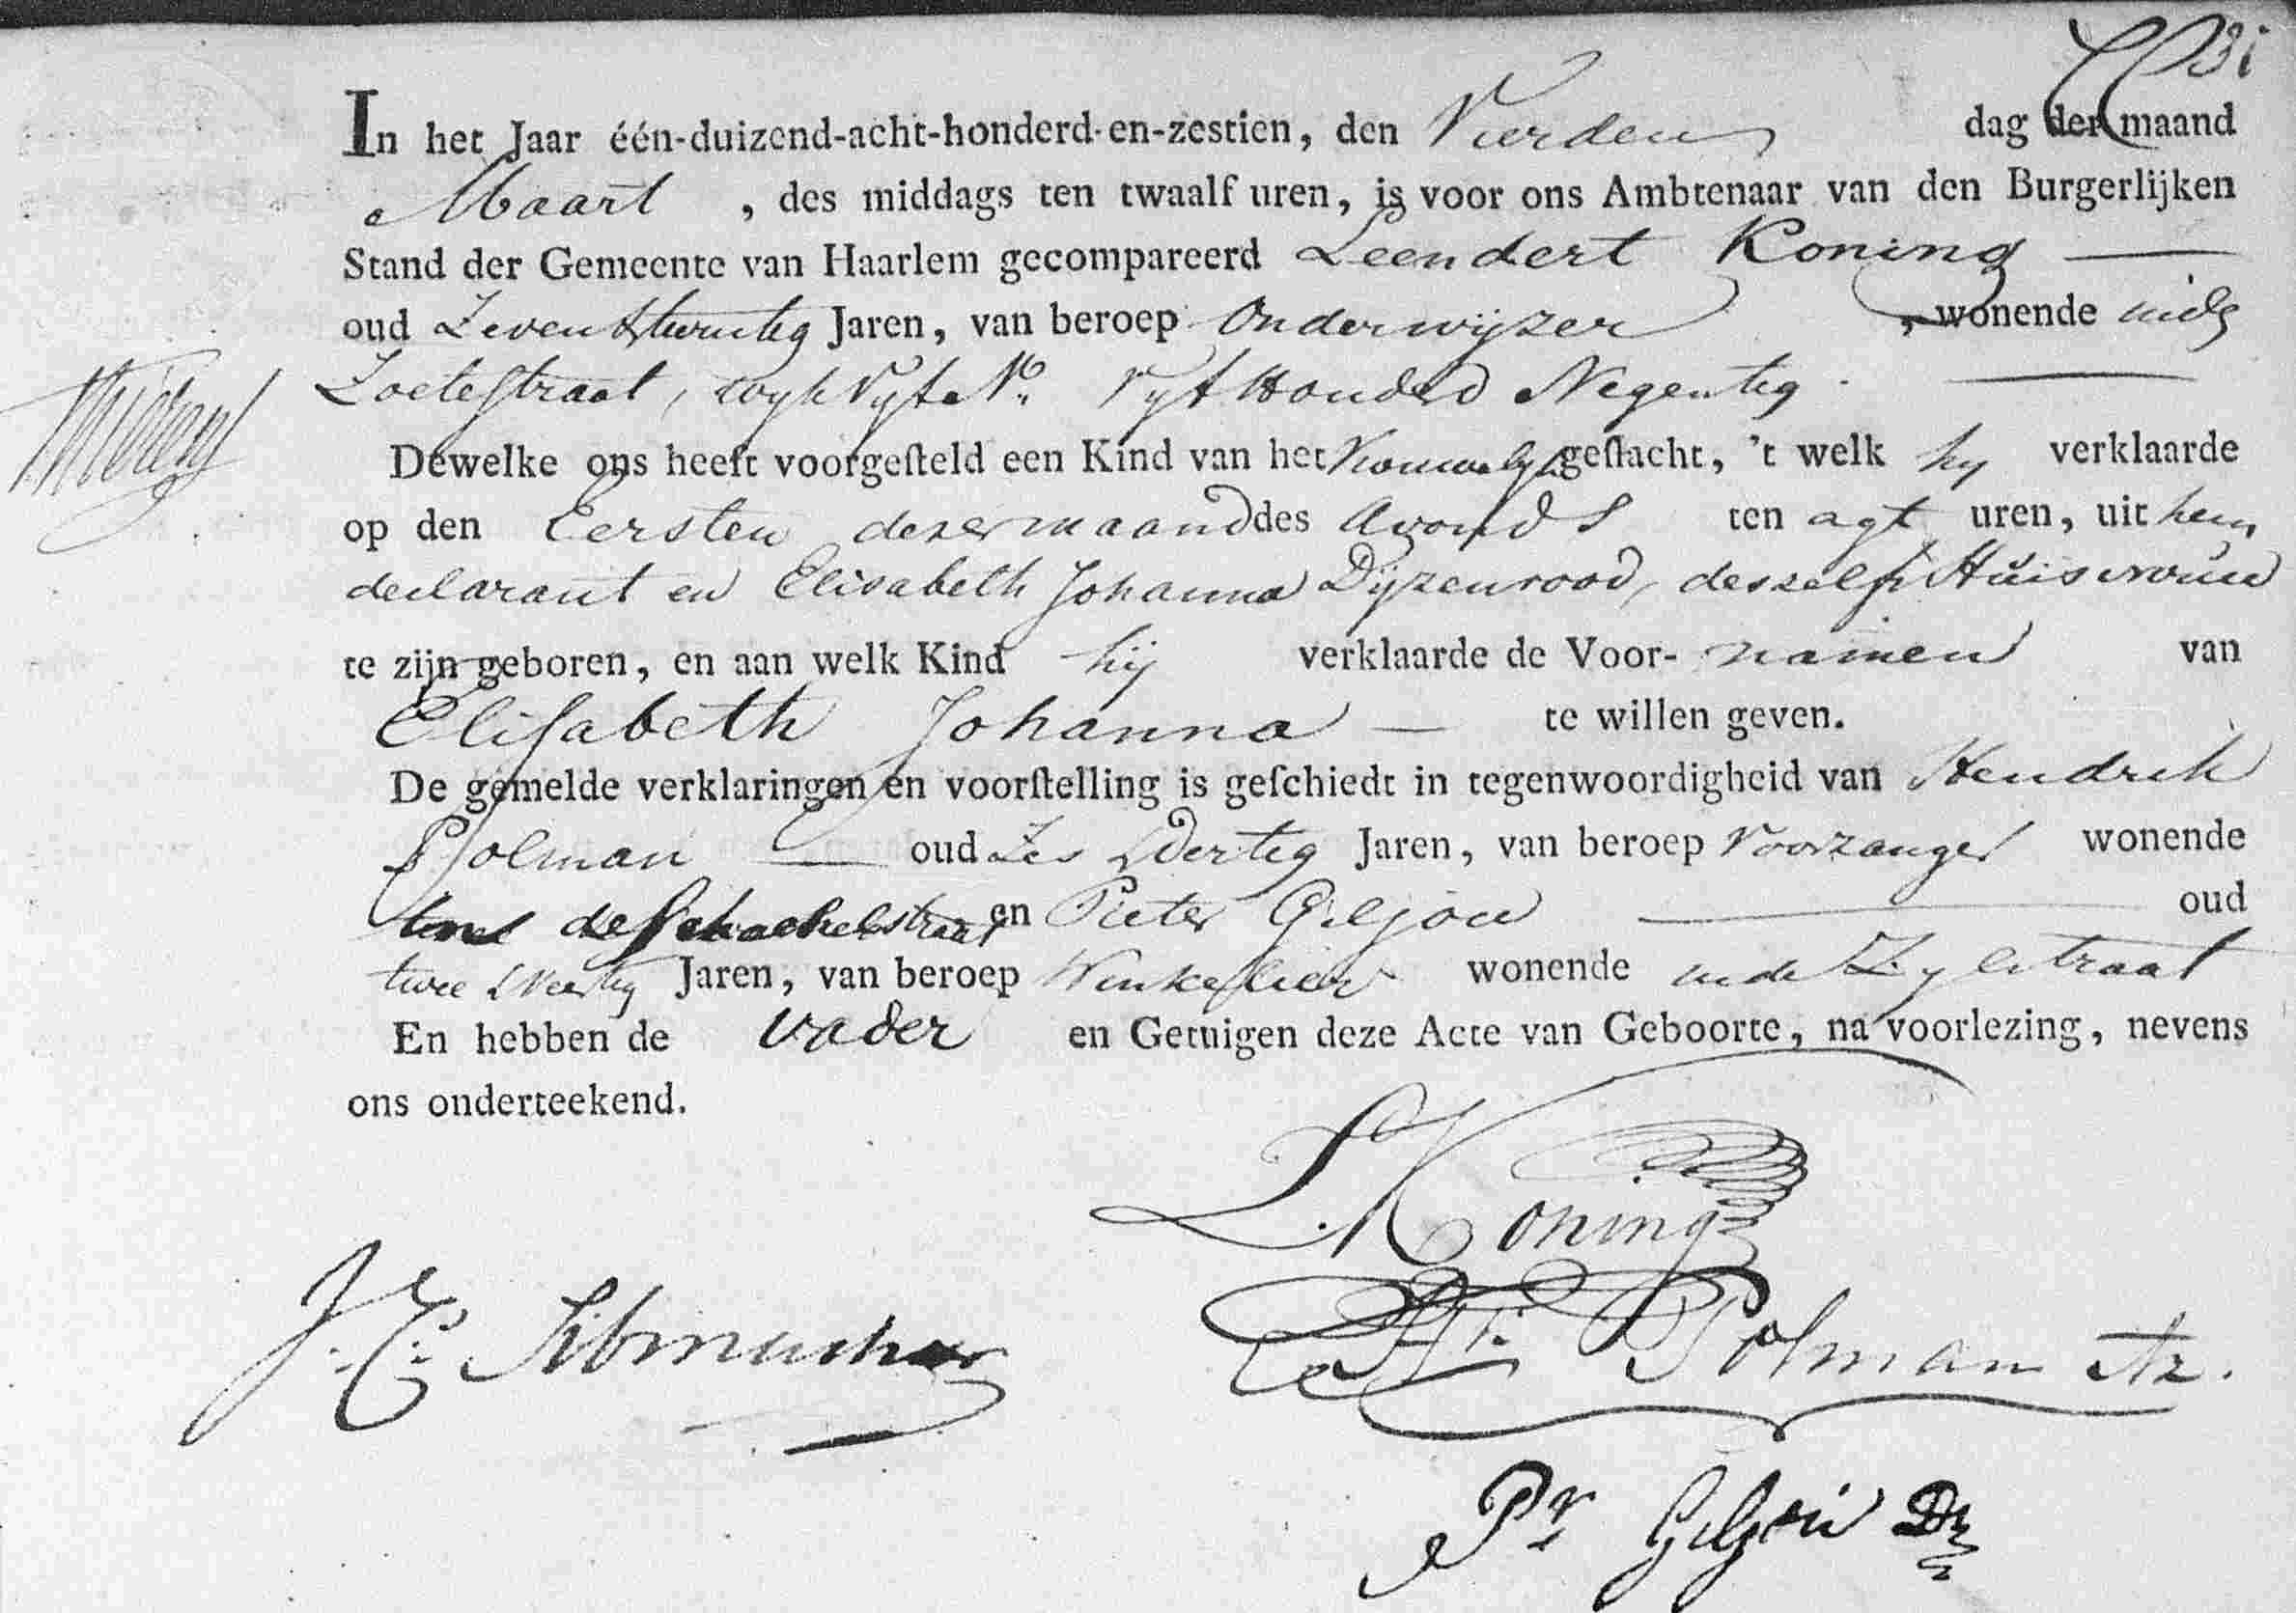 31
In het Jaar één-duizend-acht-honderd-en-zestien, den Vierden dag der maand
Maart , des middags ten twaalf uren, is voor ons Ambtenaar van den Burgerlijken
Stand der Gemeente van Haarlem gecompareerd Leendert Koning —
oud Zeven & twintig Jaren, van beroep Onderwijzer , wonende in de
Zoetestraat, wyk Vyf No. Vyf Honderd Negentig. —
Dewelke ons heeft voorgesteld een Kind van het Vrouwelyk geslacht, 't welk hy verklaarde
op den Eersten dezer maand des Avonds ten agt uren, uit hem
declarant en Elisabeth Johanna Dyzenrood, deszelfs Huisvrouw
te zijn geboren, en aan welk Kind hij verklaarde de Voor- namen van
Elisabeth Johanna — te willen geven.
De gemelde verklaringen en voorstelling is geschiedt in tegenwoordigheid van Hendrik
Polman — oud Zes & Dertig Jaren, van beroep Voorzanger wonende
in de straat en Pieter Giljou — oud
twee & Veertig Jaren, van beroep Winkelier wonende in de Zylstraat
En hebben de vader en Getuigen deze Acte van Geboorte, na voorlezing, nevens
ons onderteekend.
L. Koning
J. C. Sibmacher
Hk. Polman Az.
Pr Giljou Dz